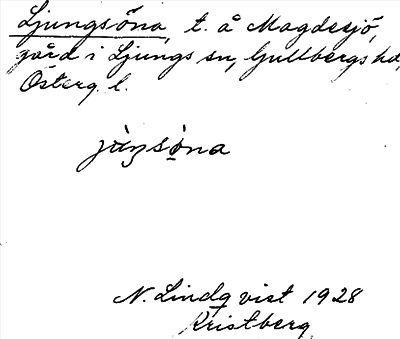 Ljungsöna, t. å Magdesjö,
gård i Ljungs sn, Gullbergs hd,
Österg. l.
jùŋso̲na
N. Lindqvist 1928
Kristberg